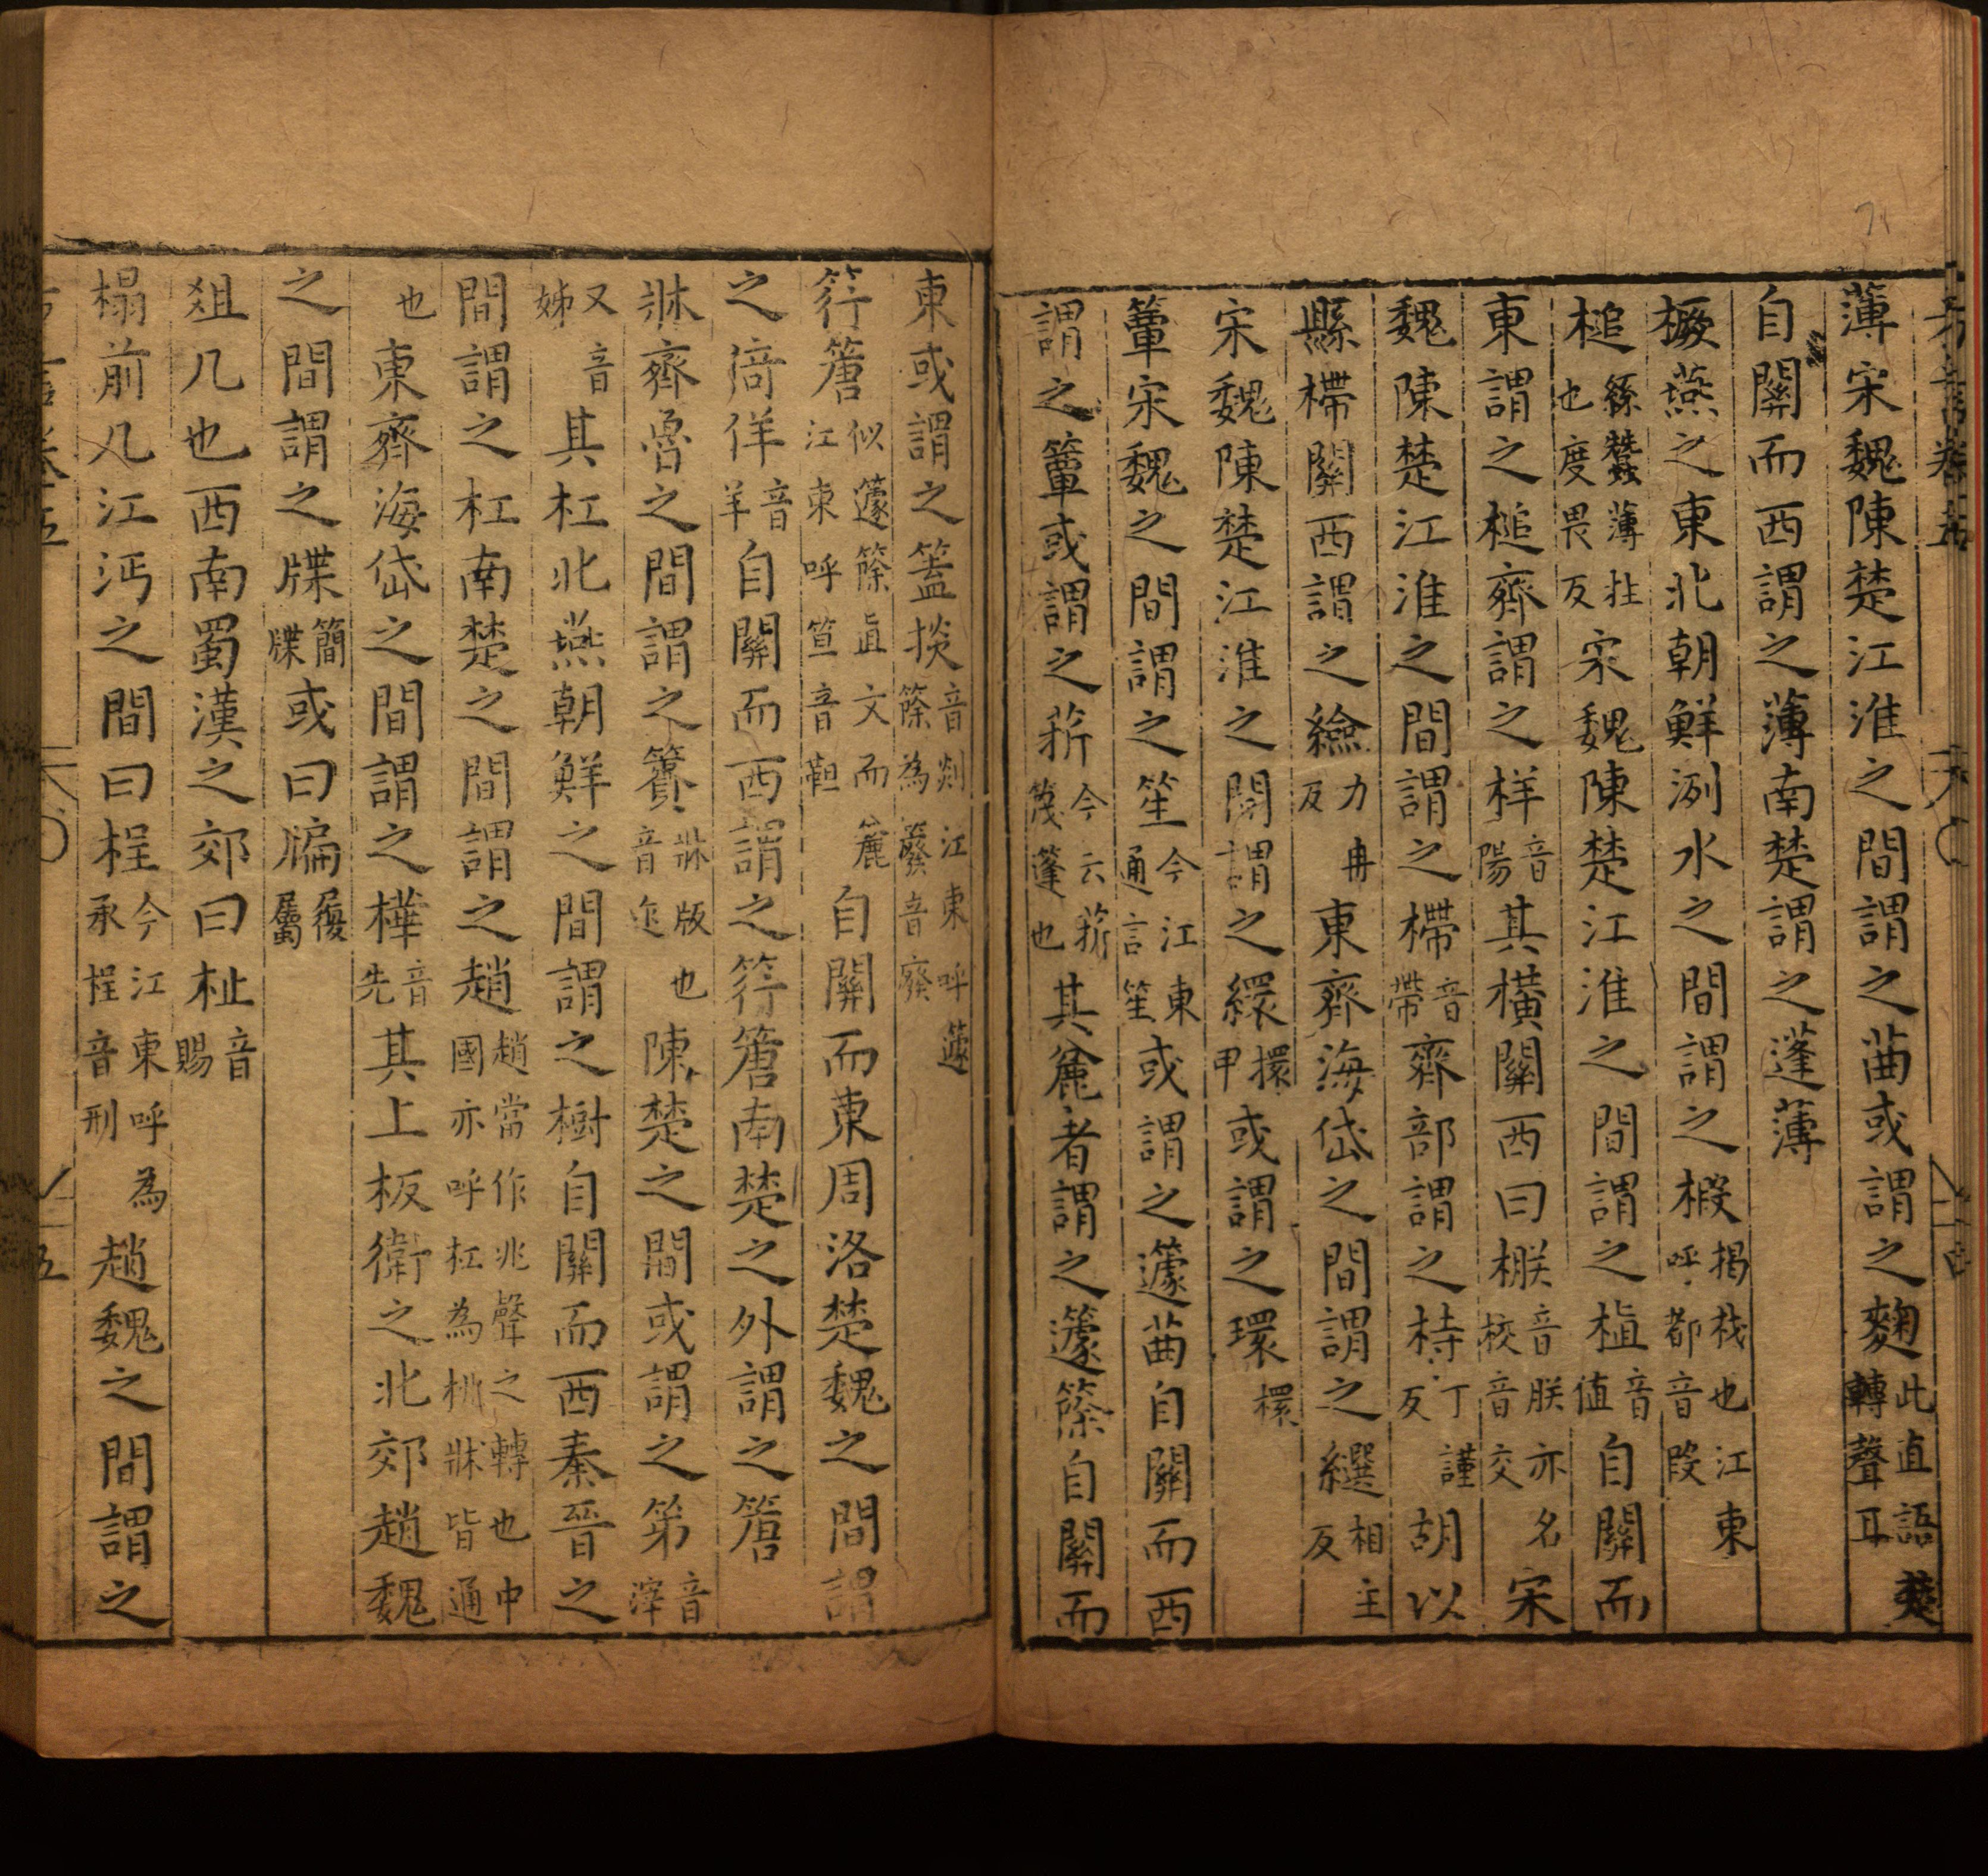 方言卷五
薄宋魏陳楚江淮之間謂之苖或謂之麴此直語轉聲耳
自關而西謂之薄南楚謂之蓬薄
橛燕之東北朝鮮洌水之間謂之椴揭杙也江東呼都音段
槌縣蠶薄柱也度畏反宋魏陳楚江淮之間謂之植音值自關而
東謂之槌齊謂之样音陽其橫關西曰㮳音朕亦名校音交宋
魏陳楚江淮之間謂之㯂音帶齊部謂之㭙丁謹反胡以
縣㯂關西謂之䌞力冉反東齊海岱之間謂之繏相主反
宋魏陳楚江淮之間謂之繯擐甲或謂之環檈
簟宋魏之間謂之笙今江東通言笙或謂之籧苖自關而西
謂之簟或謂之䉼今云䉼篾篷也其麄者謂之籧篨自關而
東或謂之䈉掞音剡江東呼籧篨為䉬音廢
筕篖似籧篨直文而麄江東呼笪音靼自關而東周洛楚魏之間謂
之倚佯音羊自關而西謂之筕篖南楚之外謂之篖
牀齊魯之間謂之簀牀版也音迮陳楚之間或謂之笫音滓
又音姊其杠北燕朝鮮之間謂之樹自關而西秦晉之
間謂之杠南楚之間謂之趙趙當作兆聲之轉也中國亦呼杠為桃牀皆通
也東齊海岱之間謂之樺音先其上板衛之北郊趙魏
之間謂之牒簡牒或曰牑履屬
俎几也西南蜀漢之郊曰杫音賜
榻前几江沔之間曰桯今江東呼為承桯音刑趙魏之間謂之